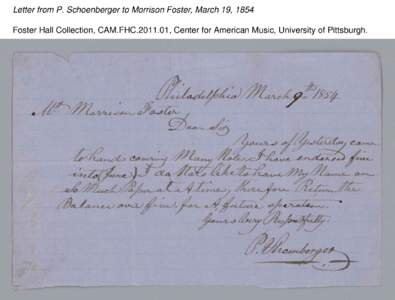 Letter from P. Schoenberger to Morrison Foster, March 19, 1854
Foster Hall Collection, CAM.FHC.2011.01, Center for American Music, University of Pittsburgh.
Philadelphia March 9th 1854
Mr Morrison Foster
Dear Sir
Yours of Yesterday came
to hand covering Many Notes I have endorsed five
into (June) I do Not like to have My Name on
So Much Paper at A time, therefore Return the
Balance over five for A future operation.
Yours Very Respectfully
P. Shoenberger